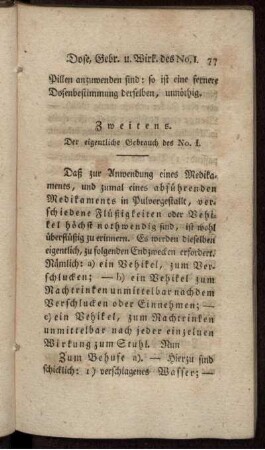 Dose, Gebr. u. Wirk. des No. I. 77
Pillen anzuwenden sind: so ist eine fernere
Dosenbestimmung derselben, unnöthig.
Zweitens.
Der eigentliche Gebrauch des No. I.
Daß zur Anwendung eines Medika-
ments, und zumal eines abführenden
Medikaments in Pulvergestallt, ver-
schiedene Flüßigkeiten oder Vehi-
kel höchst nothwendig sind, ist wohl
überflüßig zu erinnern. Es werden dieselben
eigentlich, zu folgenden Endzwecken erfordert.
Nämlich: a) ein Vehikel, zum Ver-
schlucken; — b) ein Vehikel zum
Nachtrinken unmittelbar nach dem
Verschlucken oder Einnehmen; —
c) ein Vehikel, zum Nachtrinken
unmittelbar nach jeder einzelnen
Wirkung zum Stuhl. Nun
Zum Behufe a). — Hierzu sind
schicklich: 1) verschlagenes Wasser; —